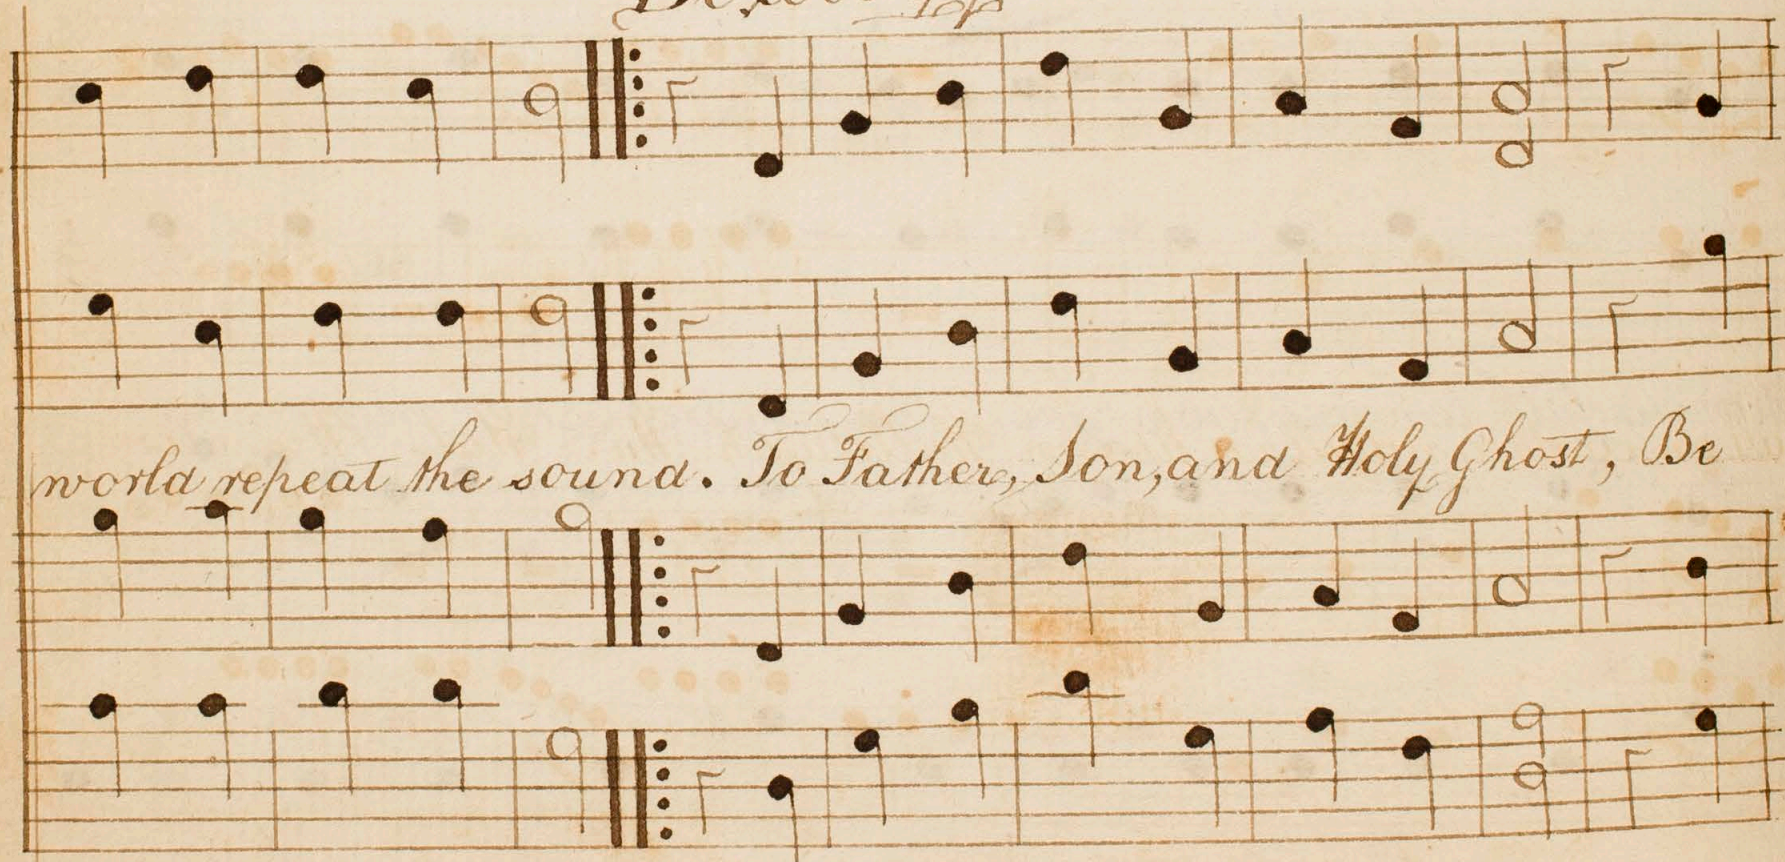 world repeat the sound. To Father, Son, and Holy Ghost, Be